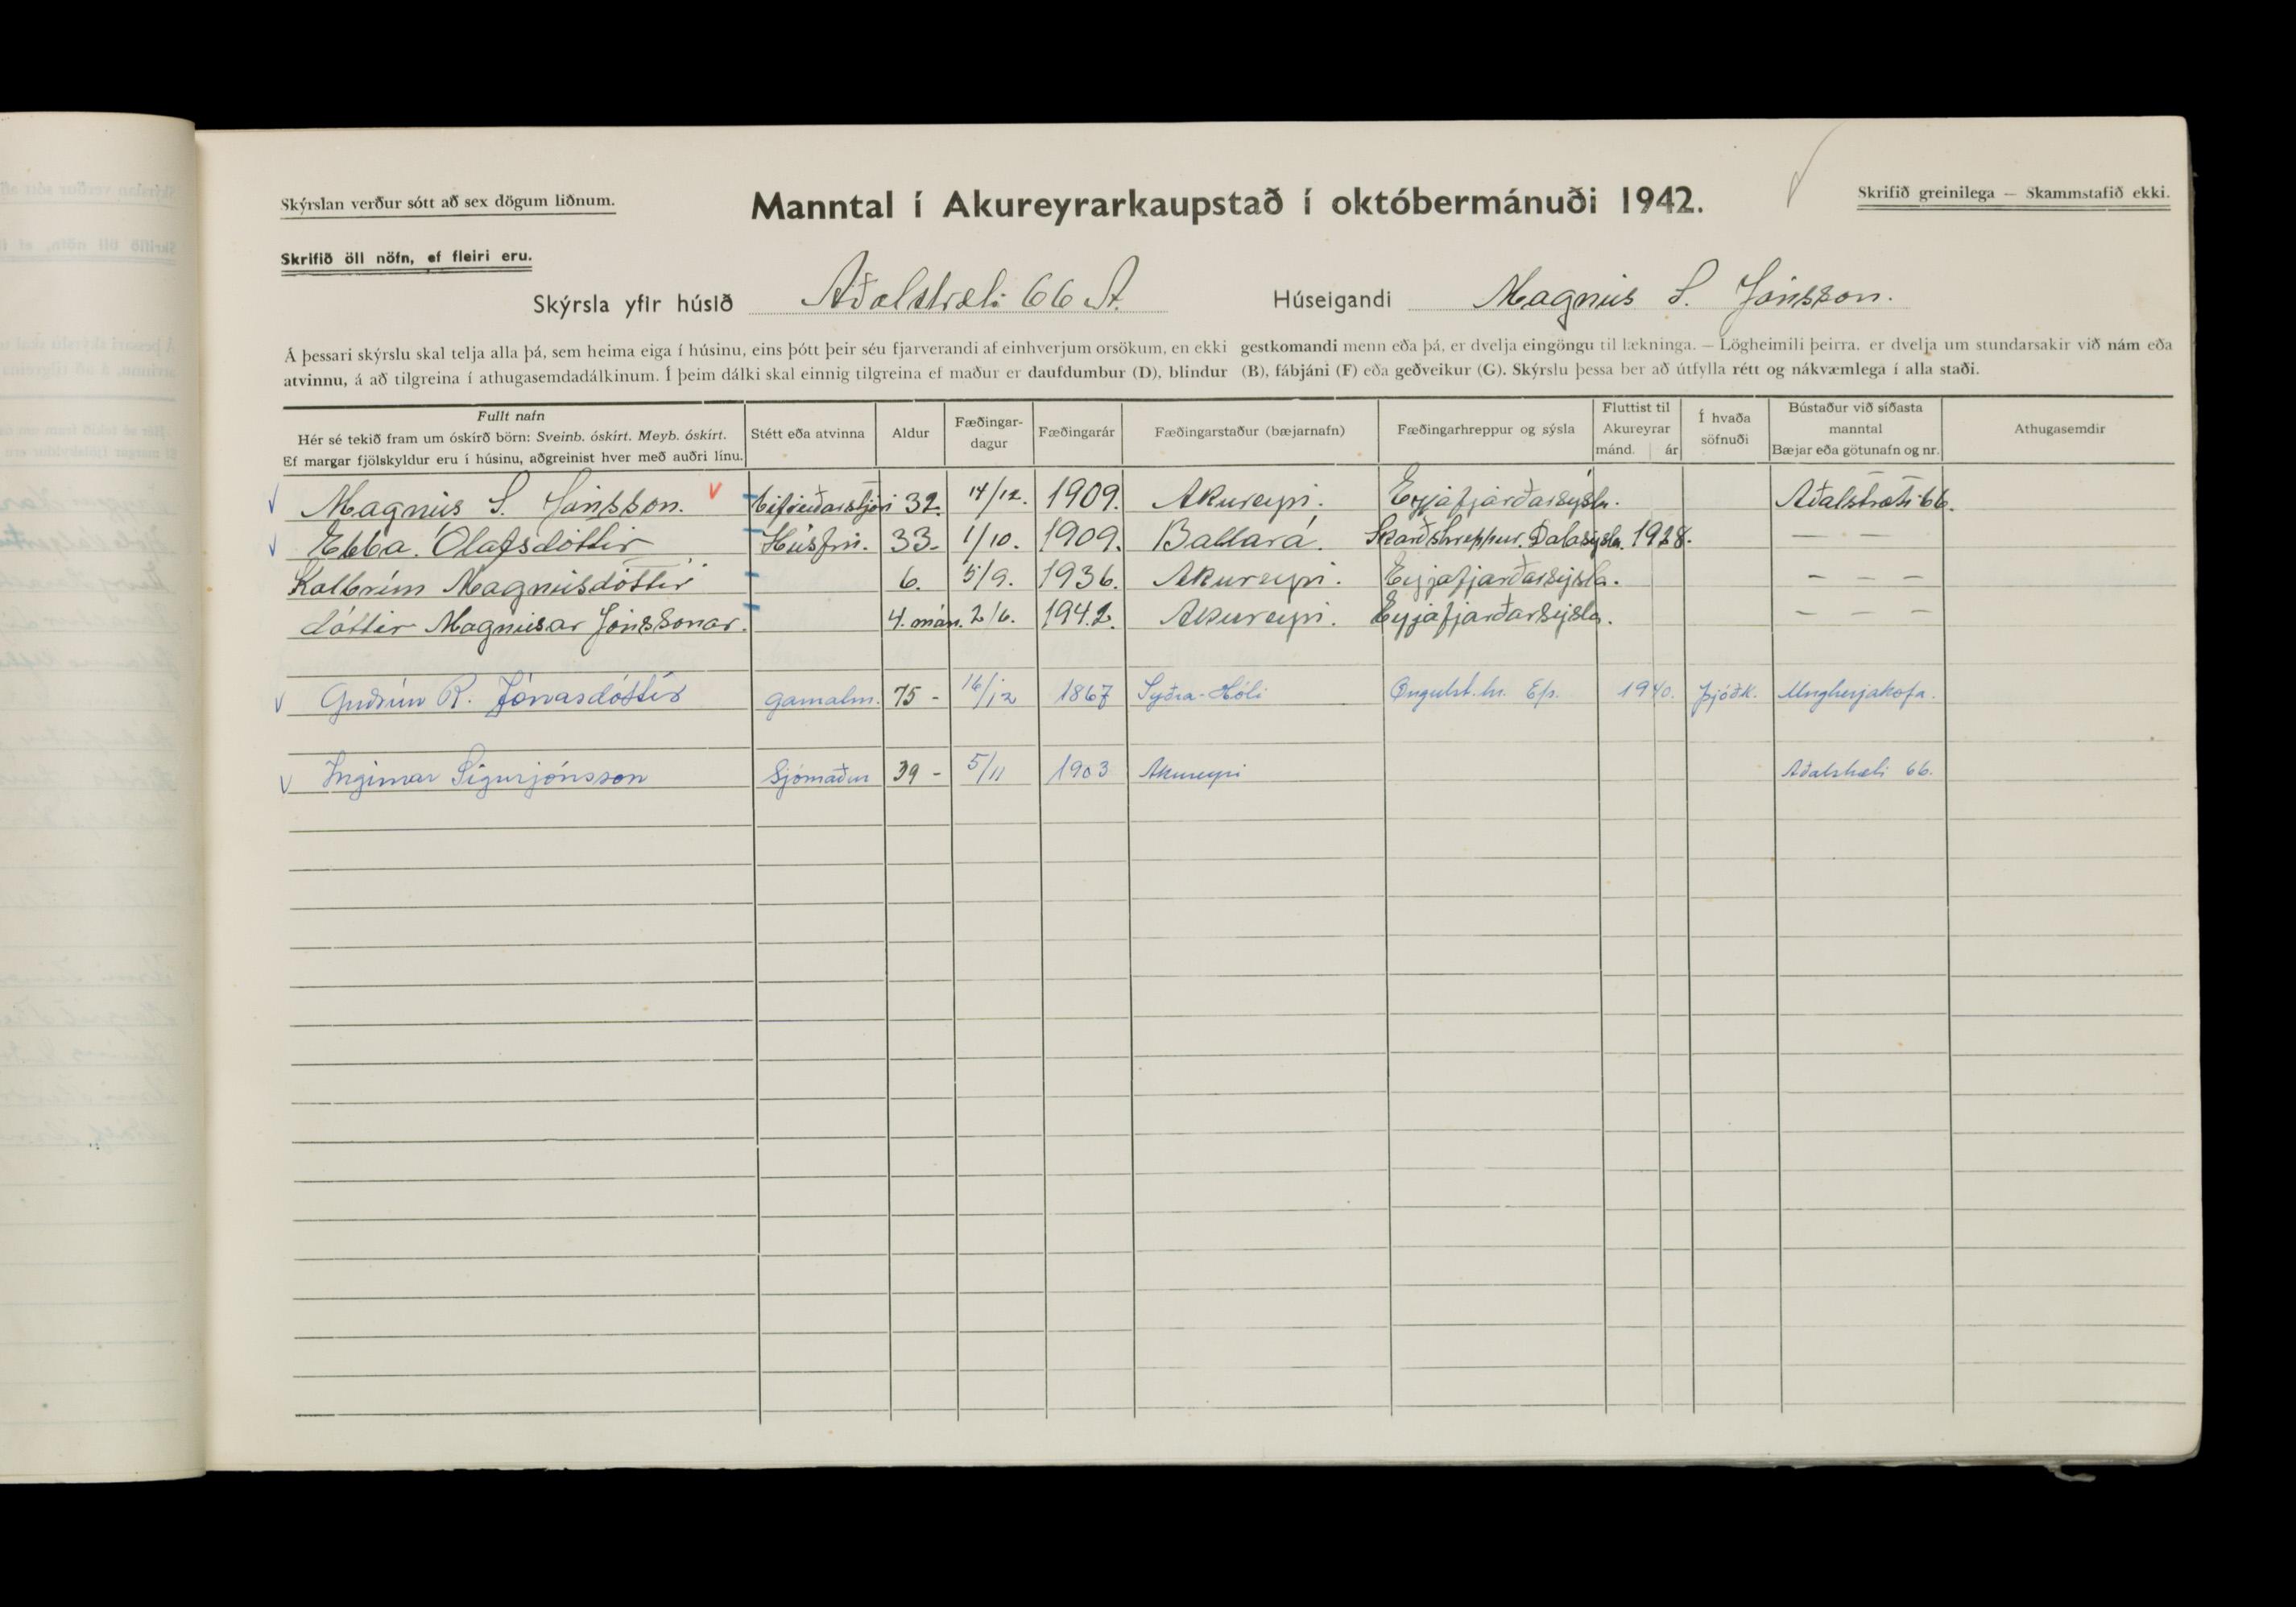 Skýrslan verður sótt að sex dögum liðnum.
Manntal í Akureyrarkaupstað í októbermánuði 1942.
Skrifið greinilega — Skammstafið ekki.
Skrifið öll nöfn, ef fleiri eru.
Skýrsla yfir húsið Aðalstræti 66 A. Húseigandi Magnús S. Jónsson.
Á þessari skýrslu skal telja alla þá, sem heima eiga í húsinu, eins þótt þeir séu fjarverandi af einhverjum orsökum, en ekki gestkomandi menn eða þá, er dvelja eingöngu til lækninga. — Lögheimili þeirra, er dvelja um stundarsakir við nám eða
atvinnu, á að tilgreina í athugasemdadálkinum. Í þeim dálki skal einnig tilgreina ef maður er daufdumbur (D), blindur (B), fábjáni (F) eða geðveikur (G). Skýrslu þessa ber að útfylla rétt og nákvæmlega í alla staði.
Fullt nafn
Hér sé tekið fram um óskírð börn: Sveinb. óskírt. Meyb. óskírt.
Ef margar fjölskyldur eru í húsinu, aðgreinist hver með auðri línu.
Stétt eða atvinna
Aldur
Fæðingar-
dagur
Fæðingarár
Fæðingarstaður (bæjarnafn)
Fæðingarhreppur og sýsla
Fluttist til
Akureyrar
mánd. ár
Í hvaða
söfnuði
Bústaður við síðasta
manntal
Bæjar eða götunafn og nr.
Athugasemdir
Magnús S. Jónsson. bifreiðarstjóri 32. 14/12. 1909. Akureyri. Eyjafjarðarsýsla. Aðalstræti 66.
Ebba Ólafsdóttir Húsfrú. 33. 1/10. 1909. Ballará. Skarðshreppur. Dalasýsla. 1928. — — —
Kolbrún Magnúsdóttir 6. 5/9. 1936. Akureyri. Eyjafjarðarsýsla. — — —
dóttir Magnúsar Jónssonar. 4. mán. 2/6. 1942. Akureyri. Eyjafjarðarsýsla. — — —
Guðrún R. Jónasdóttir gamalm. 75 - 16/12 1867 Syðra-Hóli Öngulst.hr. Eyj. 1940. þjóðk. Munkaþ
Ingimar Sigurjónsson Sjómaður 39 - 5/11 1903 Akureyri Aðalstræti 66.